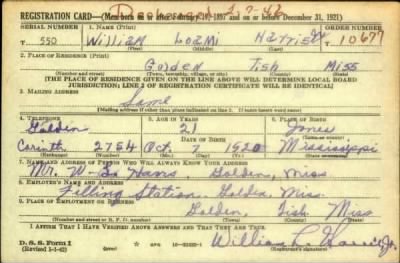 REGISTRATION CARD—(Men born on or after February 17, 1897 and on or before December 31, 1921)
2-7-42
SERIAL NUMBER
1. NAME (Print)
ORDER NUMBER
T 550
William Loami Harris
10677
(First) (Middle) (Last)
2. PLACE OF RESIDENCE (Print)
Golden Tish Miss
(Number and street) (Town, township, village, or city) (County) (State)
[THE PLACE OF RESIDENCE GIVEN ON THE LINE ABOVE WILL DETERMINE LOCAL BOARD
JURISDICTION; LINE 2 OF REGISTRATION CERTIFICATE WILL BE IDENTICAL]
3. MAILING ADDRESS
Same
[Mailing address if other than place indicated on line 2. If same insert word same]
4. TELEPHONE
5. AGE IN YEARS
6. PLACE OF BIRTH
Golden
21
Jones
DATE OF BIRTH
(Town or county)
Corinth 2754
Oct 7 1920
Mississippi
(Exchange) (Number)
(Mo.) (Day) (Yr.)
(State or country)
7. NAME AND ADDRESS OF PERSON WHO WILL ALWAYS KNOW YOUR ADDRESS
Mr. W. Harris Golden, Miss
8. EMPLOYER'S NAME AND ADDRESS
Filling Station, Golden, Miss.
9. PLACE OF EMPLOYMENT OR BUSINESS
Golden, Tish Miss
(Number and street or R. F. D. number) (Town) (County) (State)
I AFFIRM THAT I HAVE VERIFIED ABOVE ANSWERS AND THAT THEY ARE TRUE.
D. S. S. Form 1
(Revised 1-1-42)
GPO
William L. Harris, Jr.